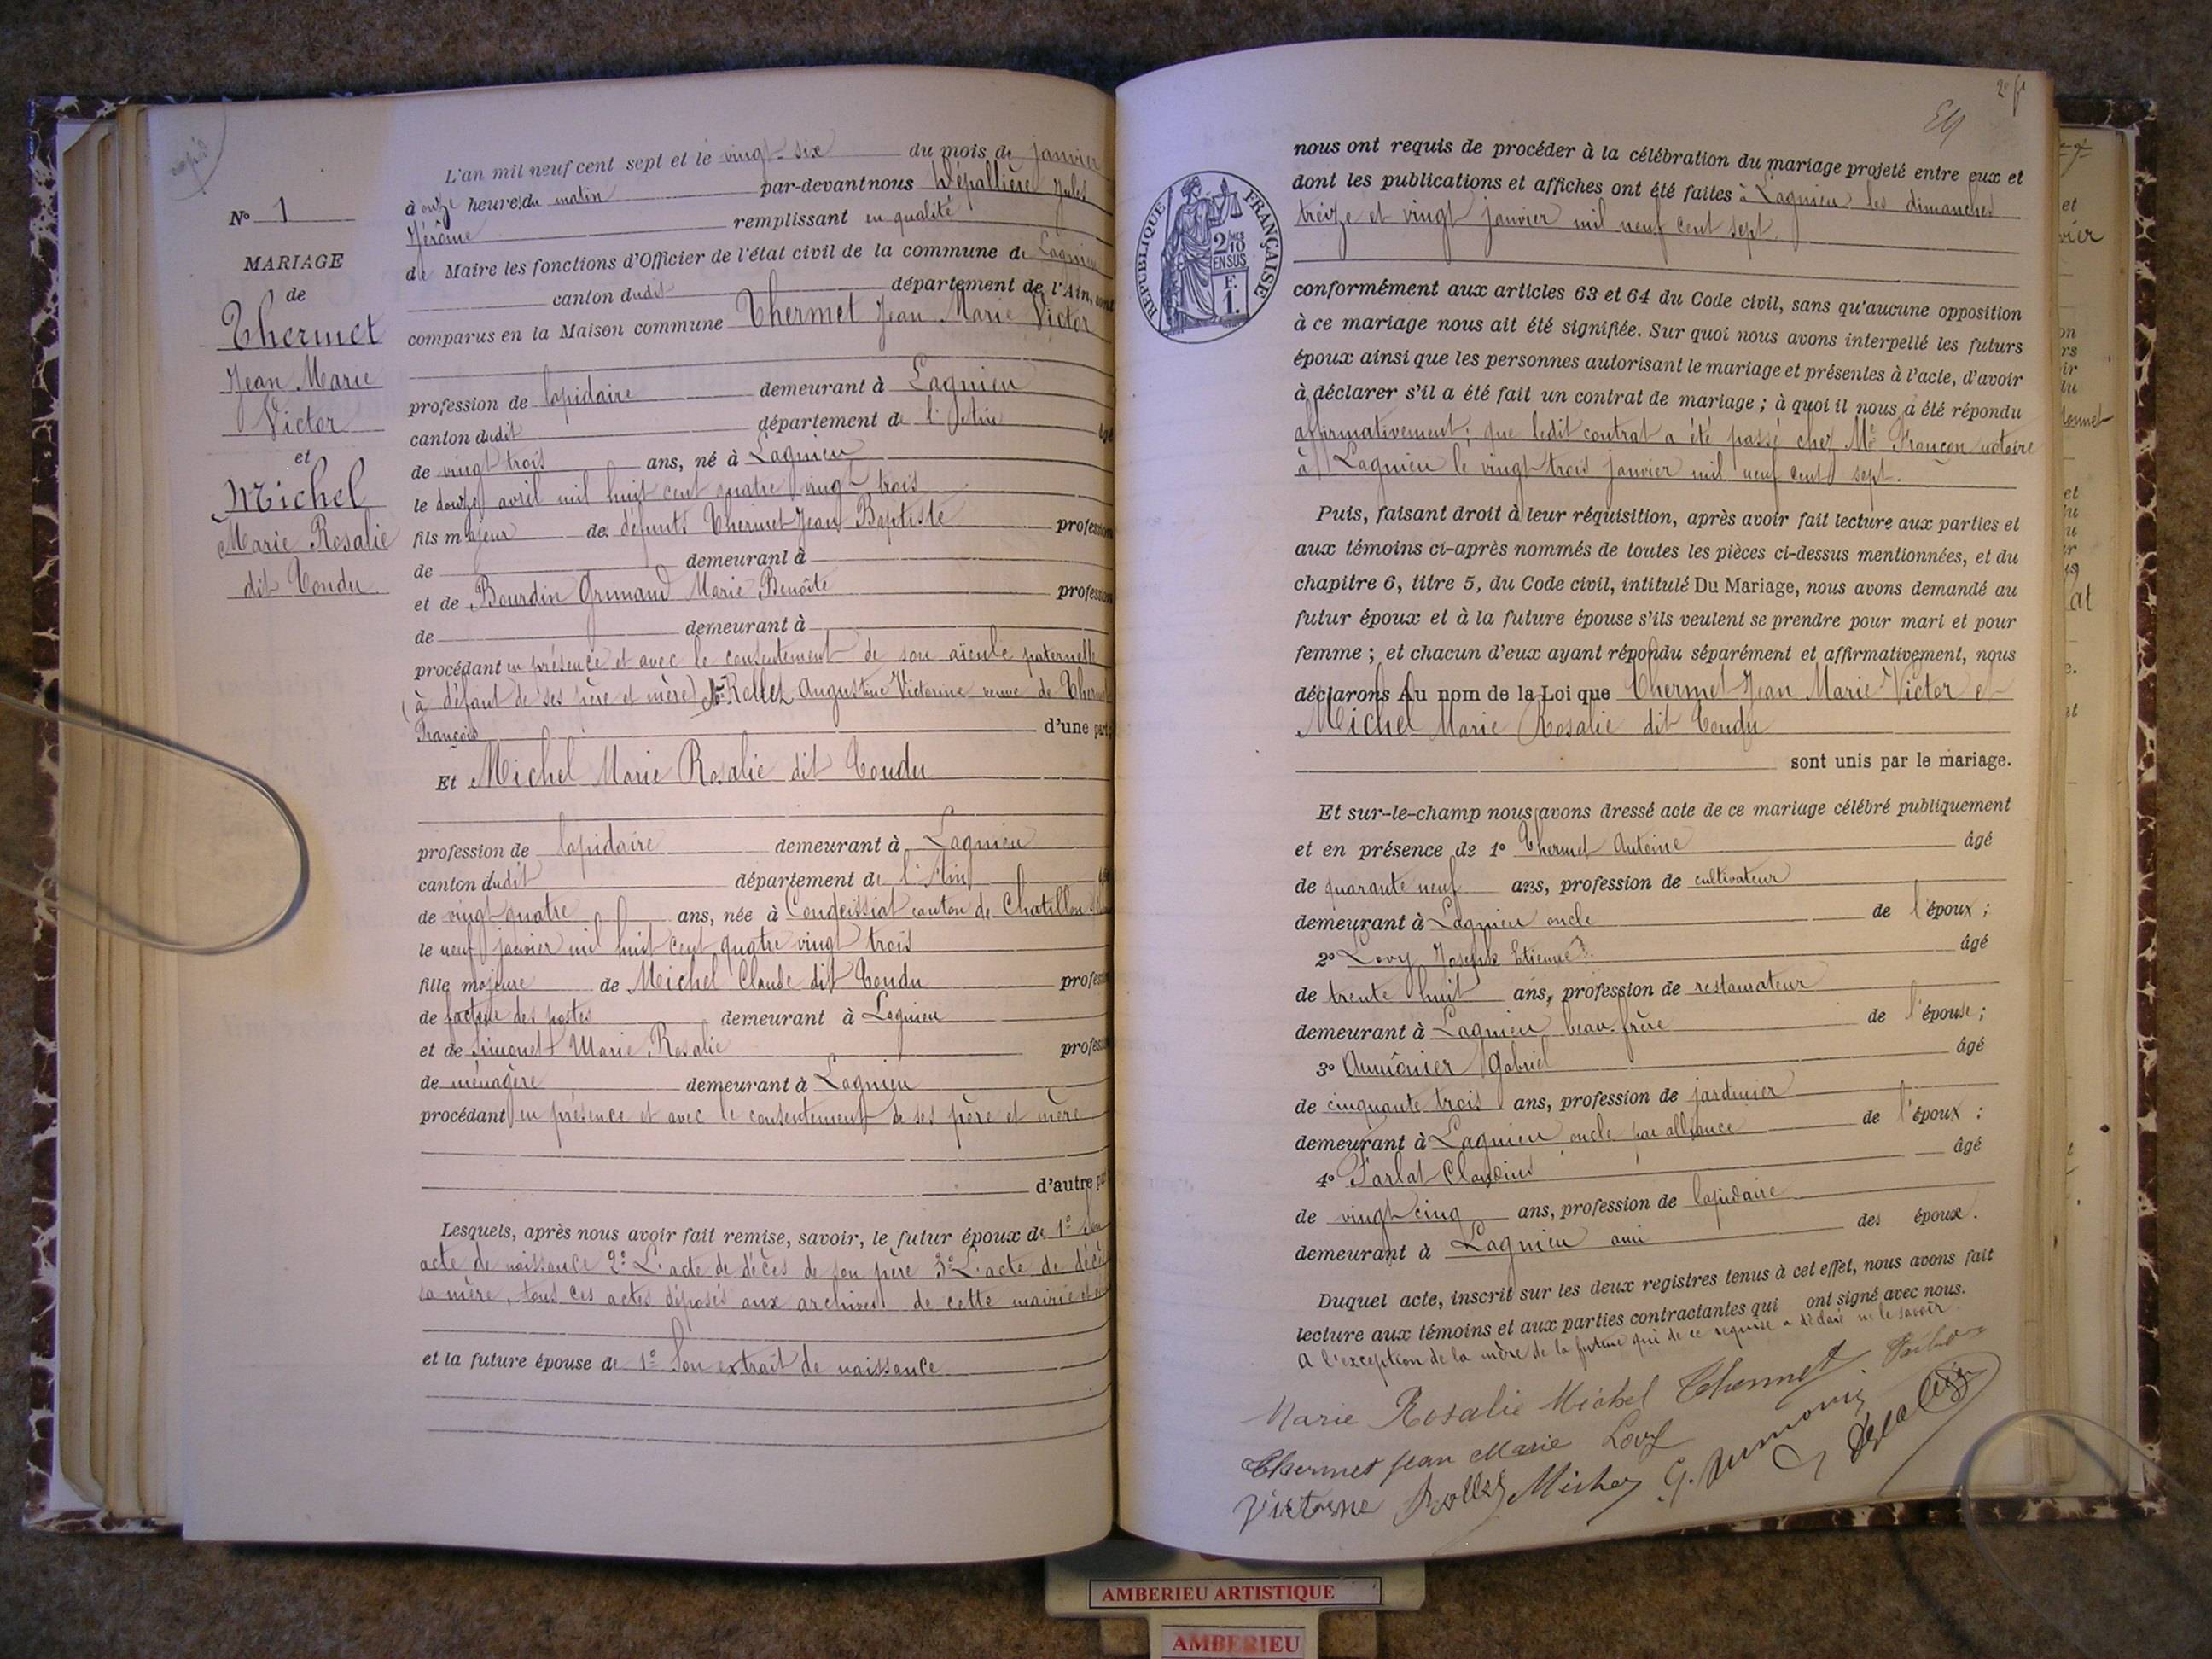 N° 1
MARIAGE
de
Thermet
Jean Marie
Victor
et
Michel
Marie Rosalie
dit Tondu
L'an mil neuf cent sept et le vingt-six du mois de janvier
à onze heures du matin par-devant nous Dépallière Jules
Jérôme remplissant en qualité
de Maire les fonctions d'Officier de l'état civil de la commune de Lagnieu
canton dudit département de l'Ain, sont
comparus en la Maison commune Thermet Jean Marie Victor
profession de lapidaire demeurant à Lagnieu
canton dudit département de l'Ain âgé
de vingt trois ans, né à Lagnieu
le douze avril mil huit cent quatre vingt trois
fils majeur de défunts Thermet Jean Baptiste profession
de demeurant à
et de Bourdin Grimaud Marie Benoîte profession
de demeurant à
procédant en présence et avec le consentement de son aïeule paternelle
(à défaut de ses père et mère) Rollet Augustine Victorine veuve de Thermet
François d'une part;
Et Michel Marie Rosalie dit Tondu
profession de lapidaire demeurant à Lagnieu
canton dudit département de l'Ain
de vingt quatre ans, née à Condeissiat canton de Chatillon
le neuf janvier mil huit cent quatre vingt trois
fille majeure de Michel Claude dit Tondu profession
de facteur des postes demeurant à Lagnieu
et de Simonet Marie Rosalie profession
de ménagère demeurant à Lagnieu
procédant en présence et avec le consentement de ses père et mère
d'autre part
Lesquels, après nous avoir fait remise, savoir, le futur époux de 1° Son
acte de naissance 2° L'acte de décès de son père 3° L'acte de décès
sa mère, tous ces actes déposés aux archives de cette mairie
et la future épouse de 1° Son extrait de naissance
2e ft
REPUBLIQUE FRANÇAISE
2/10 EN SUS
F. 1.
nous ont requis de procéder à la célébration du mariage projeté entre eux et
dont les publications et affiches ont été faites à Lagnieu les dimanches
treize et vingt janvier mil neuf cent sept
conformément aux articles 63 et 64 du Code civil, sans qu'aucune opposition
à ce mariage nous ait été signifiée. Sur quoi nous avons interpellé les futurs
époux ainsi que les personnes autorisant le mariage et présentes à l'acte, d'avoir
à déclarer s'il a été fait un contrat de mariage ; à quoi il nous a été répondu
affirmativement; que ledit contrat a été passé chez Me Françon notaire
à Lagnieu le vingt-trois janvier mil neuf cent sept.
Puis, faisant droit à leur réquisition, après avoir fait lecture aux parties et
aux témoins ci-après nommés de toutes les pièces ci-dessus mentionnées, et du
chapitre 6, titre 5, du Code civil, intitulé Du Mariage, nous avons demandé au
futur époux et à la future épouse s'ils veulent se prendre pour mari et pour
femme ; et chacun d'eux ayant répondu séparément et affirmativement, nous
déclarons Au nom de la Loi que Thermet Jean Marie Victor et
Michel Marie Rosalie dit Tondu
sont unis par le mariage.
Et sur-le-champ nous avons dressé acte de ce mariage célébré publiquement
et en présence de 1° Thermet Antoine âgé
de quarante neuf ans, profession de cultivateur
demeurant à Lagnieu oncle de l'époux ;
2° Lovy Joseph Etienne âgé
de trente huit ans, profession de restaurateur
demeurant à Lagnieu beau-frère de l'épouse ;
3° Aumônier Gabriel âgé
de cinquante trois ans, profession de jardinier
demeurant à Lagnieu oncle par alliance de l'époux :
4° Parlat Claudius âgé
de vingt cinq ans, profession de lapidaire
demeurant à Lagnieu ami des époux.
Duquel acte, inscrit sur les deux registres tenus à cet effet, nous avons fait
lecture aux témoins et aux parties contractantes qui ont signé avec nous.
A l'exception de la mère de la future qui de ce requise a déclaré ne le savoir.
Marie Rosalie Michel Thermet
Thermet Jean Marie Lovy
Victorine Rollet Michel G. Aumônier
AMBERIEU ARTISTIQUE
AMBERIEU